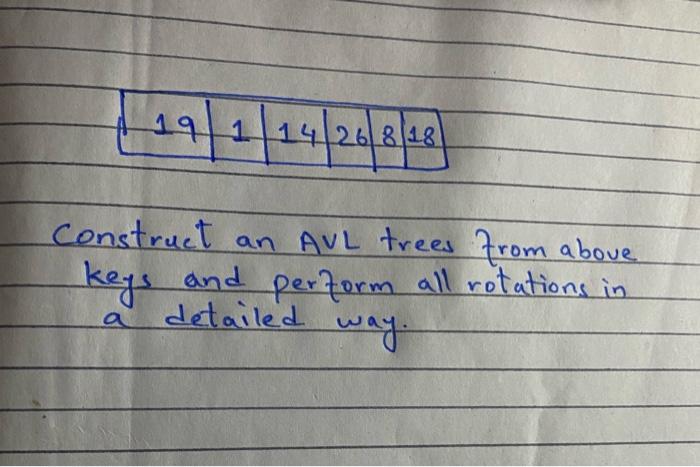 19 1 14 26 8 18
Construct an AVL trees from above
keys and perform all rotations in
a detailed way.